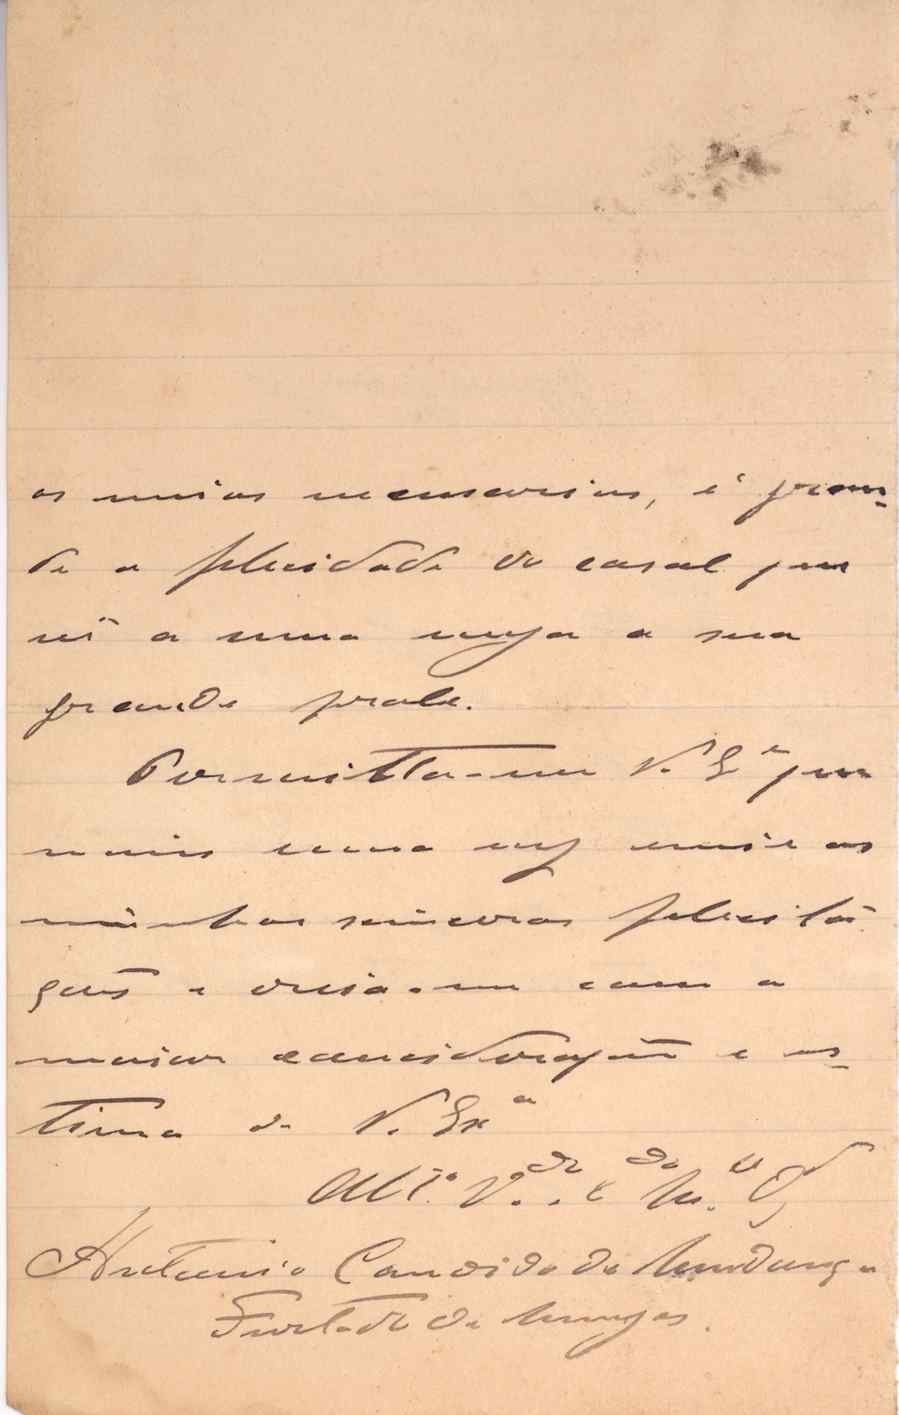 os meios necessarios, é gran-
de a felicidade do casal que
vê a uma meza a sua
grande prole.
Permitta-me V. Exª que
mais uma vez envie as
minhas sinceras felicita
ções e creia-me com a
maior consideração e es-
tima de V. Exª
Attº. V.dor e Do Mto Of
Antonio Candido de Mendonça
Furtado de Menezes.